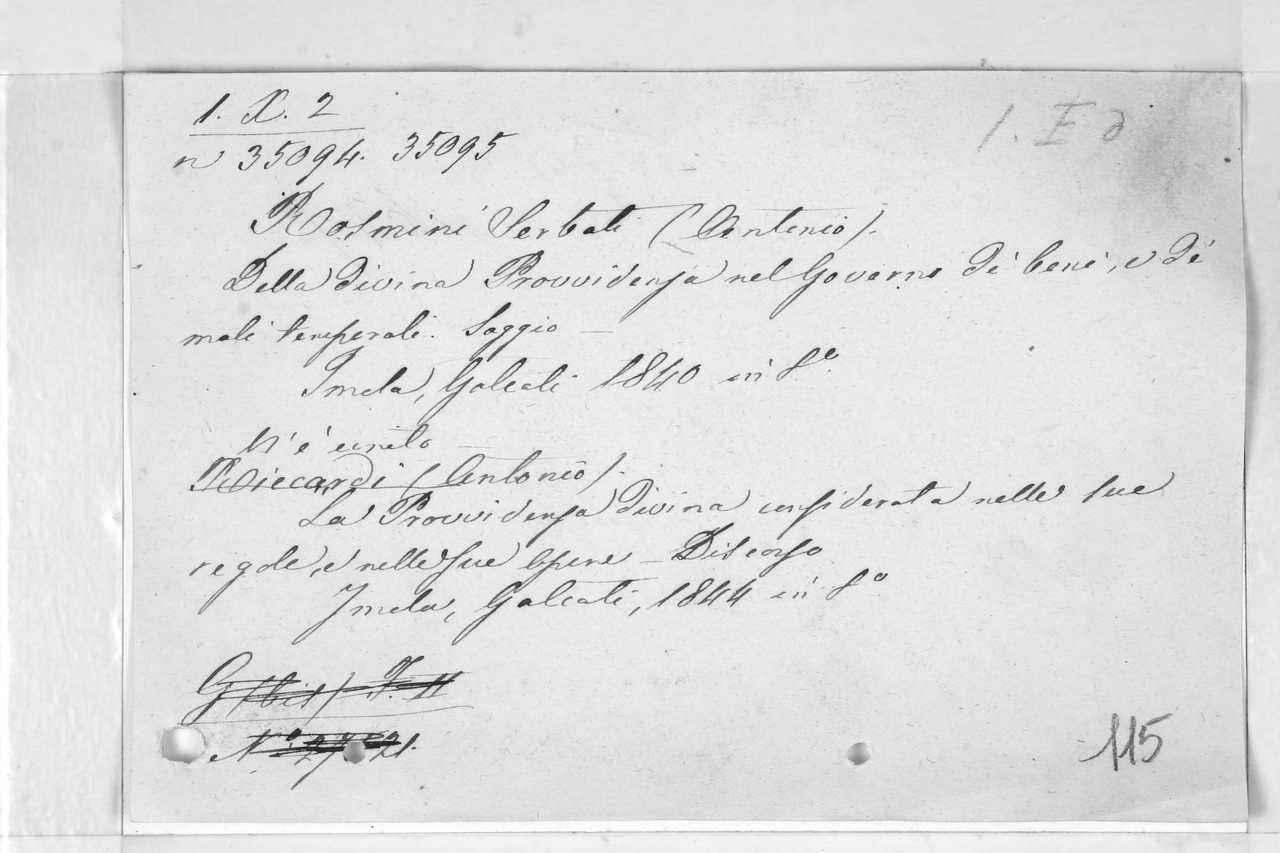 1. X. 2
1. E d
n 35094. 35095
Rosmini Serbati (Antonio).
Della divina Provvidenza nel Governo di beni, e di
mali temporali. Saggio —
Imola, Galeati 1840 in 8º.
V'è unito —
Riccardi (Antonio).
La Provvidenza divina considerata nelle sue
regole, e nelle sue opere — Discorso
Imola, Galeati, 1844 in 8º
G (bis) F.
Nº
115